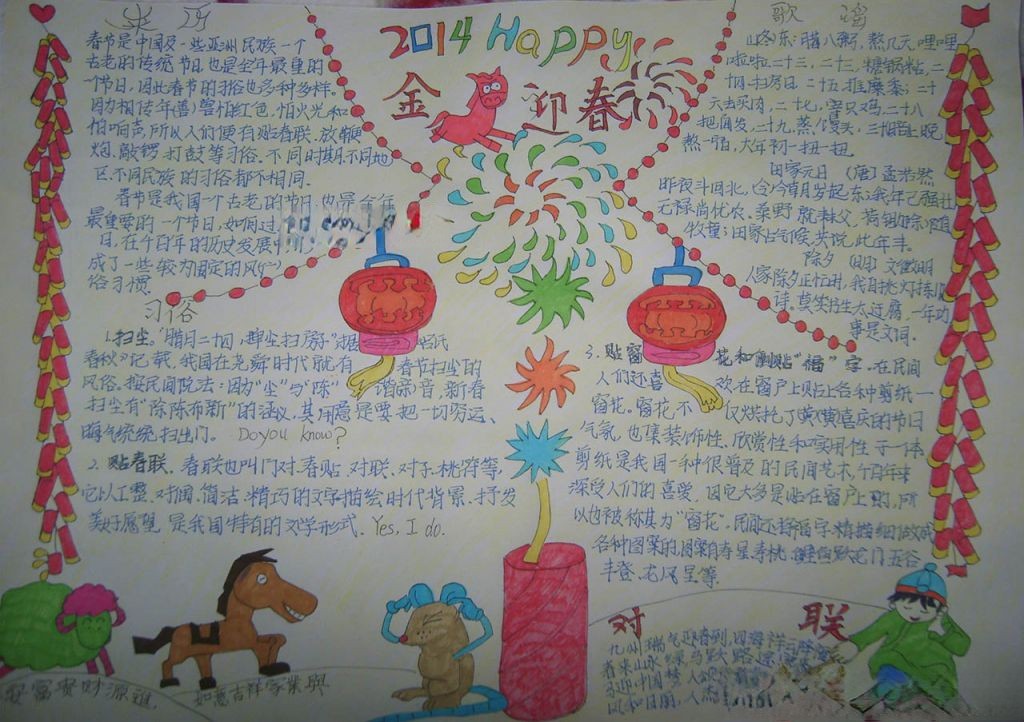 来历
春节是中国及一些亚洲民族一个
古老的传统节日,也是全年最重的
一个节日,因此春节的习俗也多种多样。
因为相传年兽兽怕红色,怕火光和
怕响声,所以人们便有贴春联、放鞭
炮、敲锣打鼓等习俗。不同时期不同地
区、不同民族的习俗都不相同。
春节是我国一个古老的节日,也是全年
最重要的一个节日,如何过
日,在千百年的历史发展中,
成了一些较为固定的风
俗习惯
2014 Happy
金 迎春
歌谣
山东:腊八粥,熬几天,哩哩
啦啦二十三,二十三,糖锅粘,二十
四扫房日,二十五,推糜黍,二十
六去买肉,二十七,宰只鸡,二十八
把面发,二十九,蒸馒头,三十晚上
熬一宿,大年初一扭一扭。
田家元日 (唐)孟浩然
昨夜斗回北,今朝岁起东;我年已强壮
无禄尚忧农。桑野就耕父,荷锄随
牧童;田家占气候,共说此年丰。
除夕 (明)文徵明
人家除夕正忙时,我自挑灯拣旧
诗。莫笑书生太迂腐,一年功
事是文词。
习俗
1.扫尘。"腊月二十四,掸尘扫房子"据 吕氏
春秋》记载,我国在尧舜时代就有 春节扫尘的
风俗。按民间说法:因为"尘"与"陈" 谐音,新春
扫尘有"除陈布新"的涵义,其用意是要把一切穷运、
晦气统统扫出门。 Do you know?
2.贴春联。春联也叫门对、春贴、对联、对子、桃符等,
它以工整、对偶、简洁、精巧的文字描绘时代背景、抒发
美好愿望,是我国特有的文学形式。Yes, I do.
3.贴窗花和倒贴"福"字。在民间
人们还喜欢在窗户上贴上各种剪纸—
窗花。窗花不仅烘托了喜庆的节日
气氛,也集装饰性、欣赏性和实用性于一体
剪纸是我国一种很普及的民间艺术,千百年来
深受人们的喜爱,因它大多是贴在窗户上的,所
以也被称其为"窗花"。民间还将福字精描细做成
各种图案的,图案有寿星、寿桃、鲤鱼跃龙门、五谷
丰登、龙凤呈等。
对联
九州瑞气迎春到,四海祥云
春来山水绿,马跃路
中国梦
风和日丽,人杰
安富贵财源进
如意吉祥家业兴